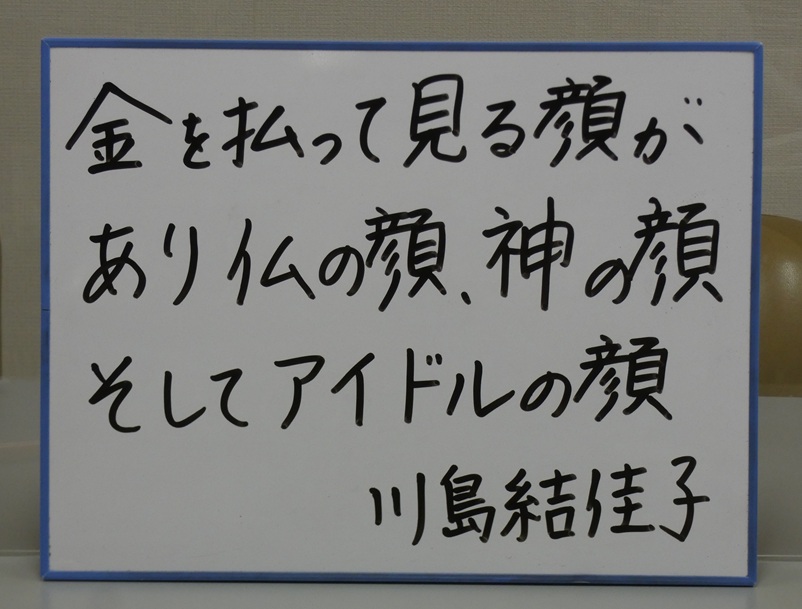 金を払って見る顔が
あり仏の顔、神の顔
そしてアイドルの顔
川島結佳子